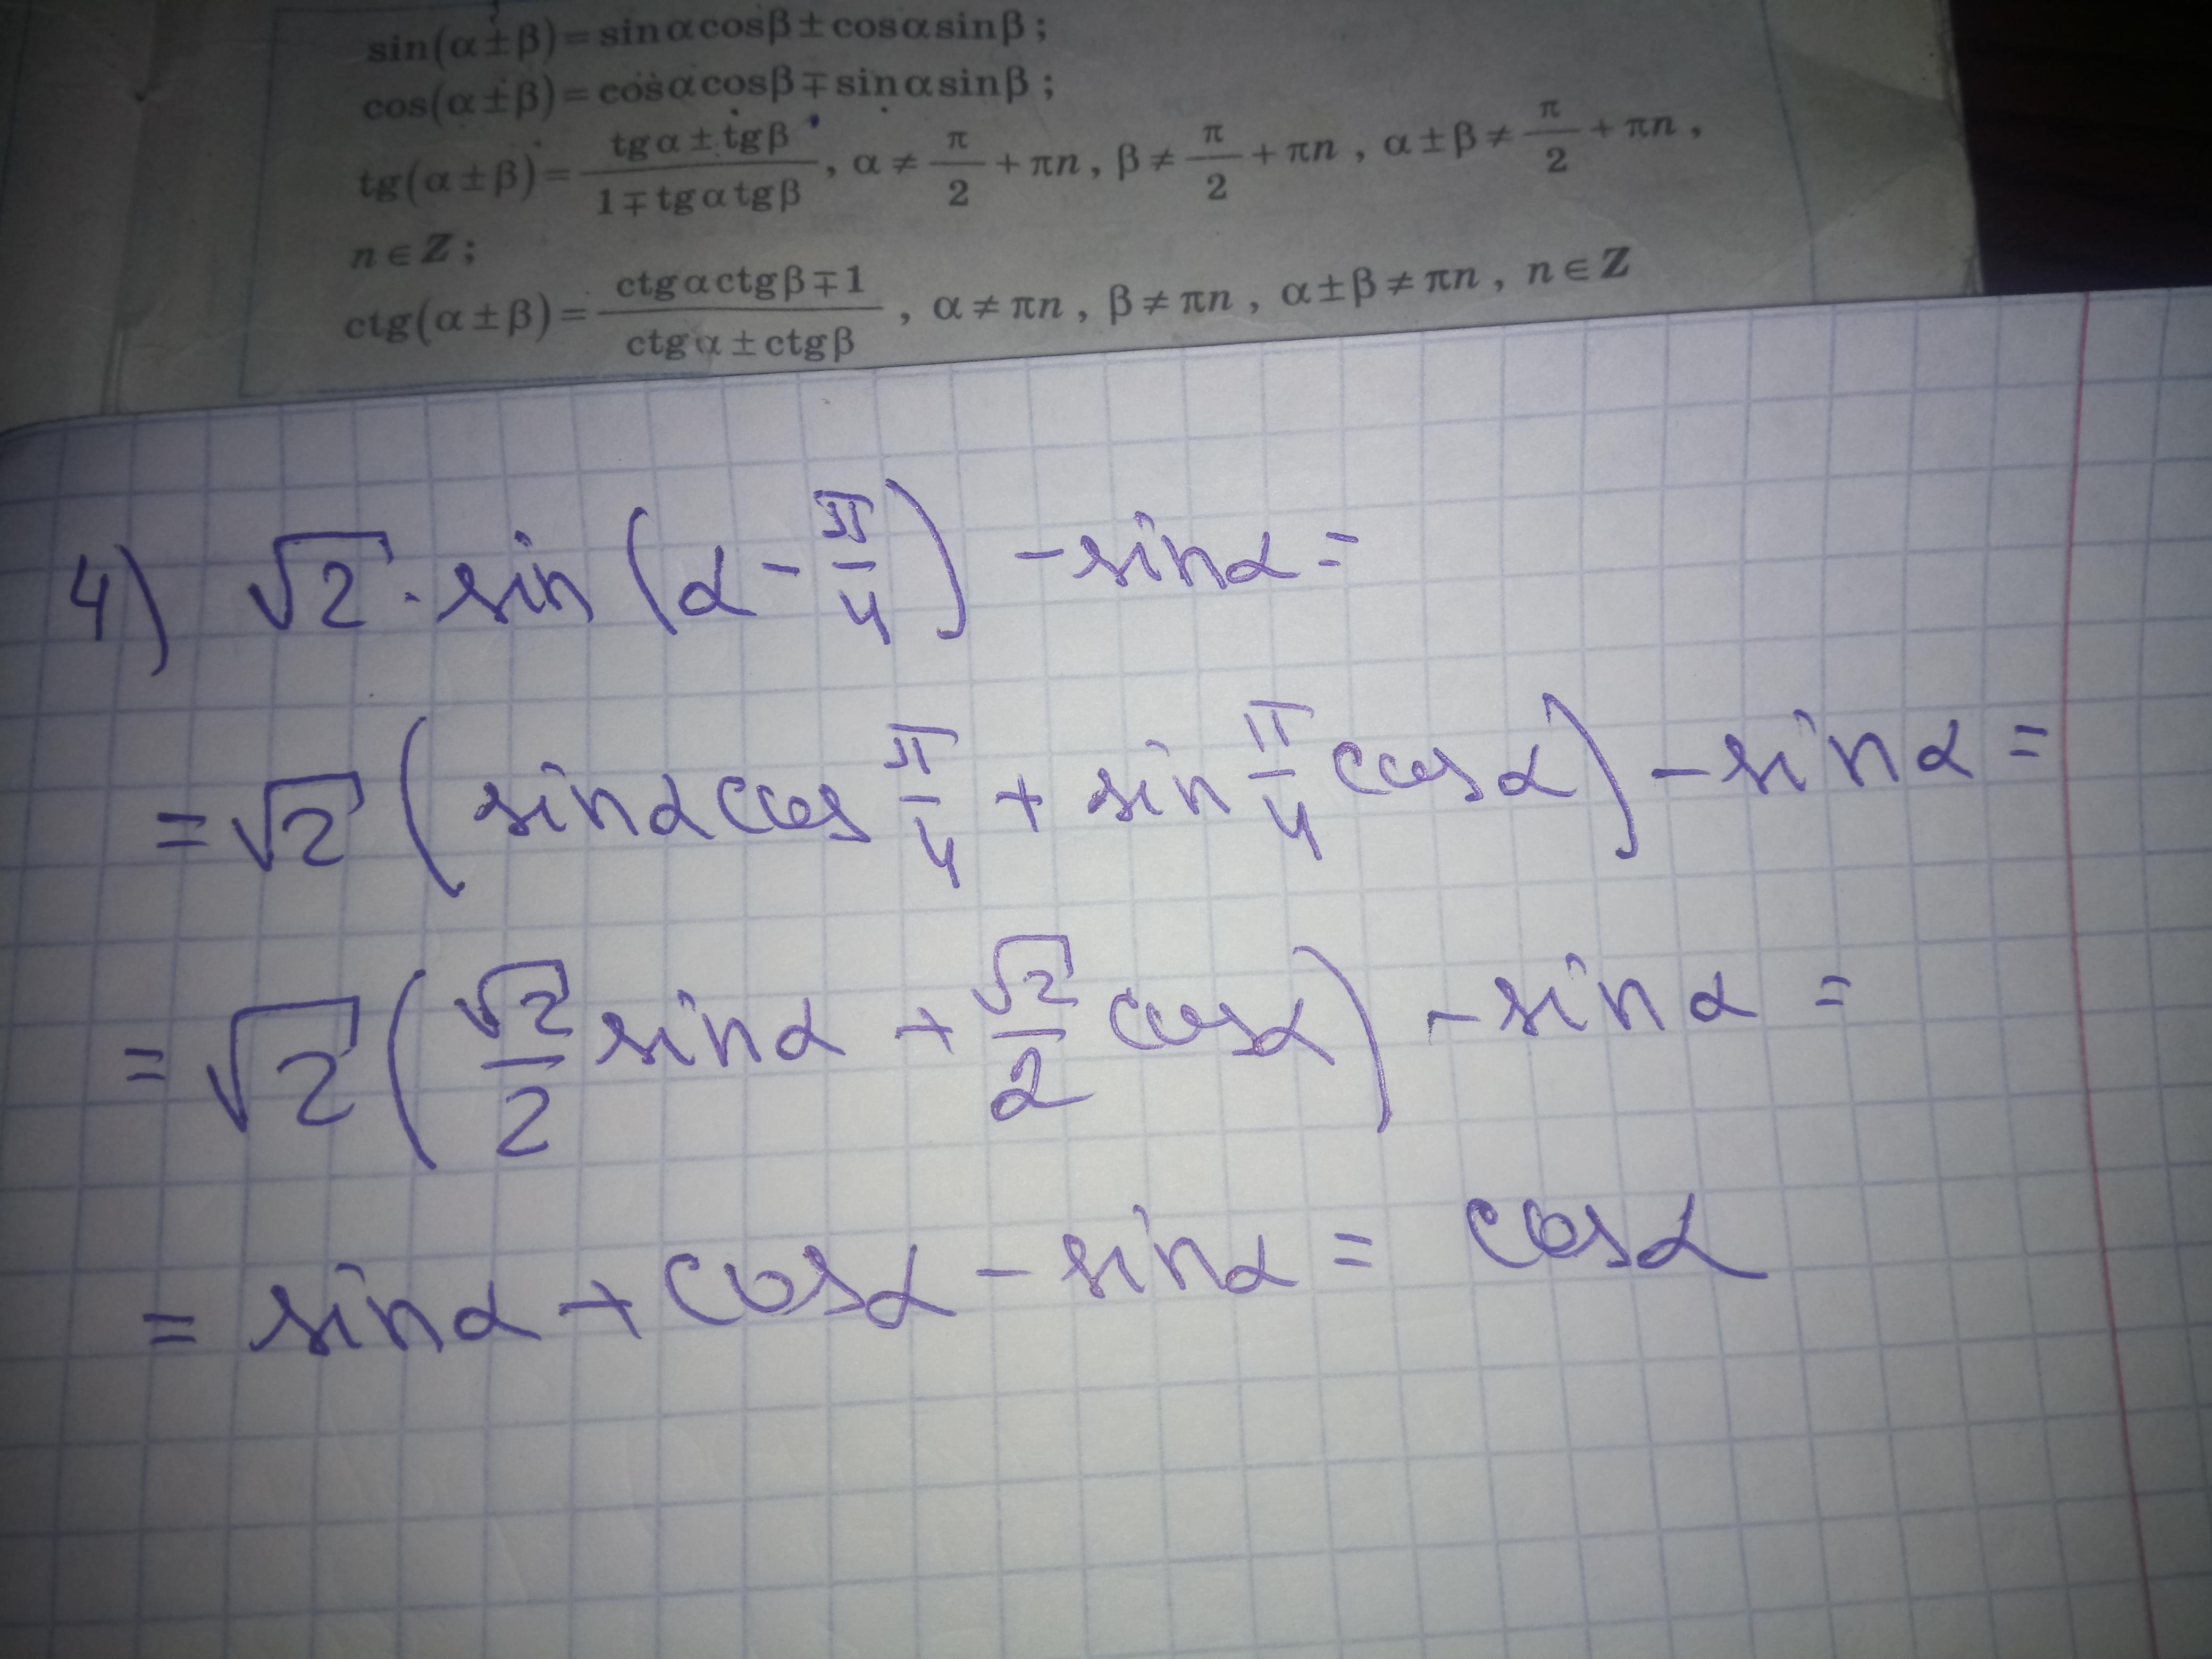 sin(α±β)=sinαcosβ±cosαsinβ;
cos(α±β)=cosαcosβ∓sinαsinβ;
tg(α±β)=(tgα±tgβ)/(1∓tgαtgβ), α≠π/2+πn, β≠π/2+πn, α±β≠π/2+πn,
n∈Z;
ctg(α±β)=(ctgαctgβ∓1)/(ctgα±ctgβ), α≠πn, β≠πn, α±β≠πn, n∈Z
4) √2·sin(α-π/4)-sinα=
=√2(sinαcosπ/4+sinπ/4cosα)-sinα=
=√2(√2/2sinα+√2/2cosα)-sinα=
=sinα+cosα-sinα=cosα